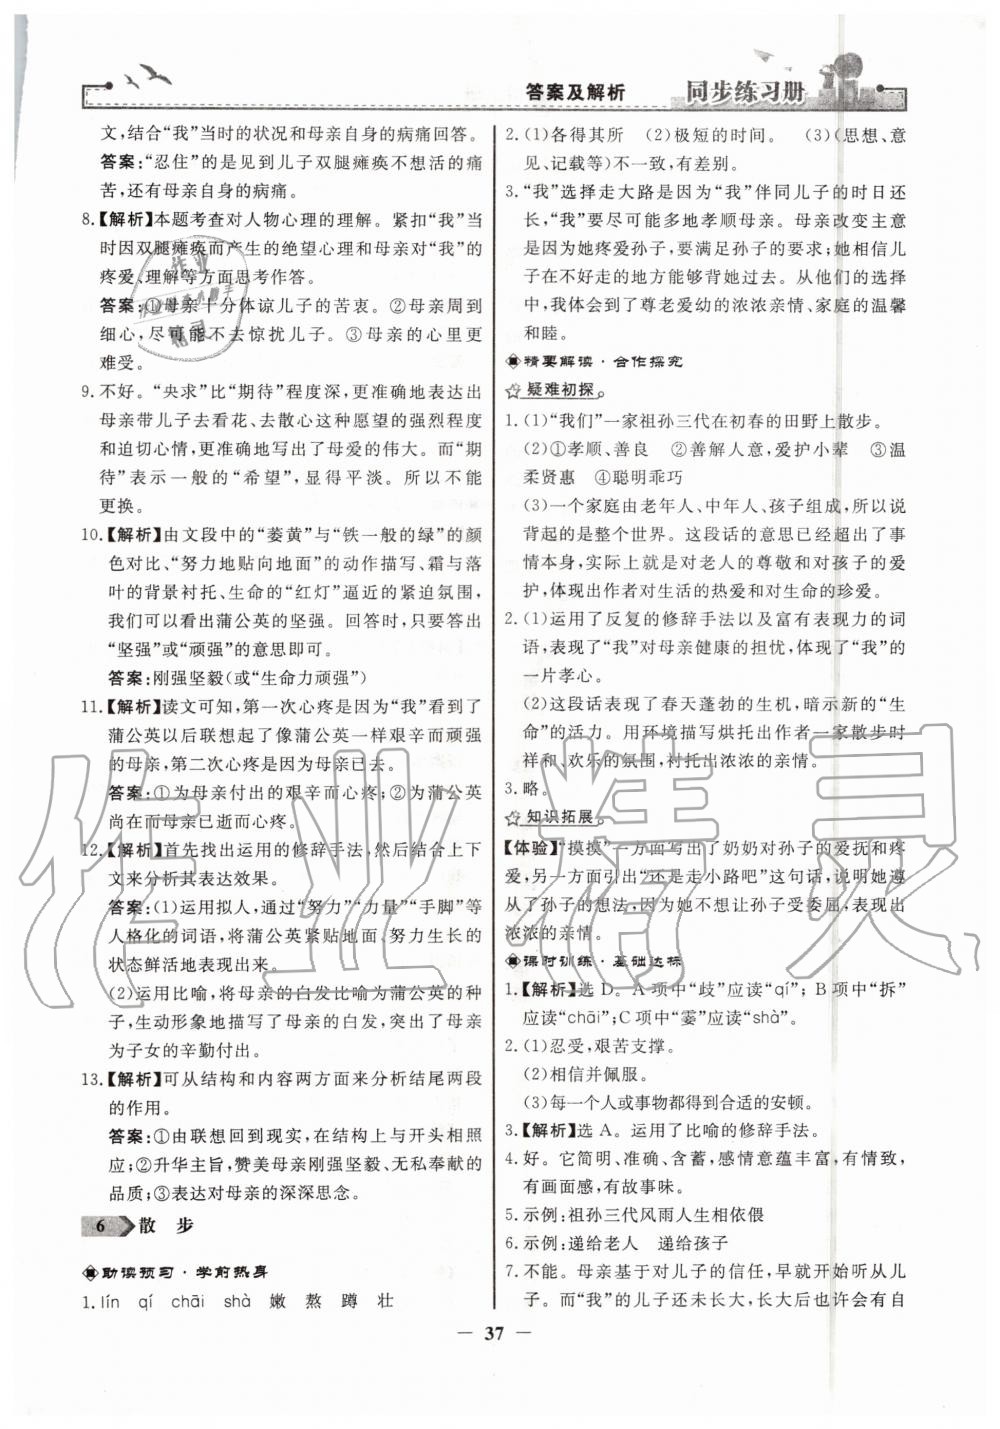 答案及解析
同步练习册
文,结合“我”当时的状况和母亲自身的病痛回答。
答案:“忍住”的是见到儿子双腿瘫痪不想活的痛
苦,还有母亲自身的病痛。
8.【解析】本题考查对人物心理的理解。紧扣“我”当
时因双腿瘫痪而产生的绝望心理和母亲对“我”的
疼爱、理解等方面思考作答。
答案:①母亲十分体谅儿子的苦衷。②母亲周到
细心,尽可能不去惊扰儿子。③母亲的心里更
难受。
9.不好。“央求”比“期待”程度深,更准确地表达出
母亲带儿子去看花、去散心这种愿望的强烈程度
和迫切心情,更准确地写出了母爱的伟大。而“期
待”表示一般的“希望”,显得平淡。所以不能
更换。
10.【解析】由文段中的“萎黄”与“铁一般的绿”的颜
色对比、“努力地贴向地面”的动作描写、霜与落
叶的背景衬托、生命的“红灯”逼近的紧迫氛围,
我们可以看出蒲公英的坚强。回答时,只要答出
“坚强”或“顽强”的意思即可。
答案:刚强坚毅(或“生命力顽强”)
11.【解析】读文可知,第一次心疼是因为“我”看到了
蒲公英以后联想起了像蒲公英一样艰辛而顽强
的母亲,第二次心疼是因为母亲已去。
答案:①为母亲付出的艰辛而心疼;②为蒲公英
尚在而母亲已逝而心疼。
12.【解析】首先找出运用的修辞手法,然后结合上下
文来分析其表达效果。
答案:(1)运用拟人,通过“努力”“力量”“手脚”等
人格化的词语,将蒲公英紧贴地面、努力生长的
状态鲜活地表现出来。
(2)运用比喻,将母亲的白发比喻为蒲公英的种
子,生动形象地描写了母亲的白发,突出了母亲
为子女的辛勤付出。
13.【解析】可从结构和内容两方面来分析结尾两段
的作用。
答案:①由联想回到现实,在结构上与开头相照
应;②升华主旨,赞美母亲刚强坚毅、无私奉献的
品质;③表达对母亲的深深思念。
6 散 步
助读预习·学前热身
1. lín qí chāi shà 嫩 熬 蹲 壮
2.(1)各得其所 (2)极短的时间。 (3)(思想、意
见、记载等)不一致,有差别。
3.“我”选择走大路是因为“我”伴同儿子的时日还
长,“我”要尽可能多地孝顺母亲。母亲改变主意
是因为她疼爱孙子,要满足孙子的要求;她相信儿
子在不好走的地方能够背她过去。从他们的选择
中,我体会到了尊老爱幼的浓浓亲情、家庭的温馨
和睦。
精要解读·合作探究
疑难初探
1.(1)“我们”一家祖孙三代在初春的田野上散步。
(2)①孝顺、善良 ②善解人意,爱护小辈 ③温
柔贤惠 ④聪明乖巧
(3)一个家庭由老年人、中年人、孩子组成,所以说
背起的是整个世界。这段话的意思已经超出了事
情本身,实际上是对老人的尊敬和对孩子的爱
护,体现出作者对生活的热爱和对生命的珍爱。
2.(1)运用了反复的修辞手法以及富有表现力的词
语,表现了“我”对母亲健康的担忧,体现了“我”的
一片孝心。
(2)这段话表现了春天蓬勃的生机,暗示新的“生
命”的活力。用环境描写烘托出作者一家散步时
祥和、欢乐的氛围,衬托出浓浓的亲情。
3.略。
知识拓展
【体验】“摸摸”一方面写出了奶奶对孙子的爱抚和疼
爱,另一方面引出“还是走小路吧”这句话,说明她遵
从了孙子的想法,因为她不想让孙子受委屈,表现出
浓浓的亲情。
课时训练·基础达标
1.【解析】选 D。A 项中“歧”应读“qí”;B 项中“拆”
应读“chāi”;C 项中“霎”应读“shà”。
2.(1)忍受,艰苦支撑。
(2)相信并佩服。
(3)每一个人或事物都得到合适的安顿。
3.【解析】选 A。运用了比喻的修辞手法。
4.好。它简明、准确、含蓄,感情意蕴丰富,有情致,
有画面感,有故事味。
5.示例:祖孙三代风雨人生相依偎
6.示例:递给老人 递给孩子
7.不能。母亲基于对儿子的信任,早就开始听从儿
子。而“我”的儿子还未长大,长大后也许会有自
— 37 —
作业精灵